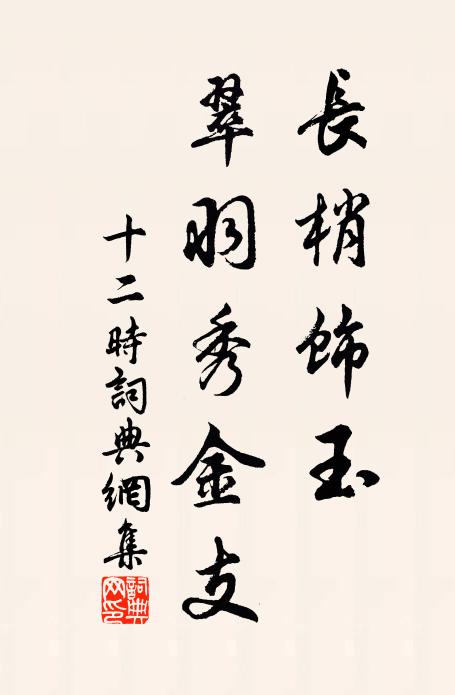 長梢飾玉
翠羽秀金支
十二時詞典網集
詞典網印